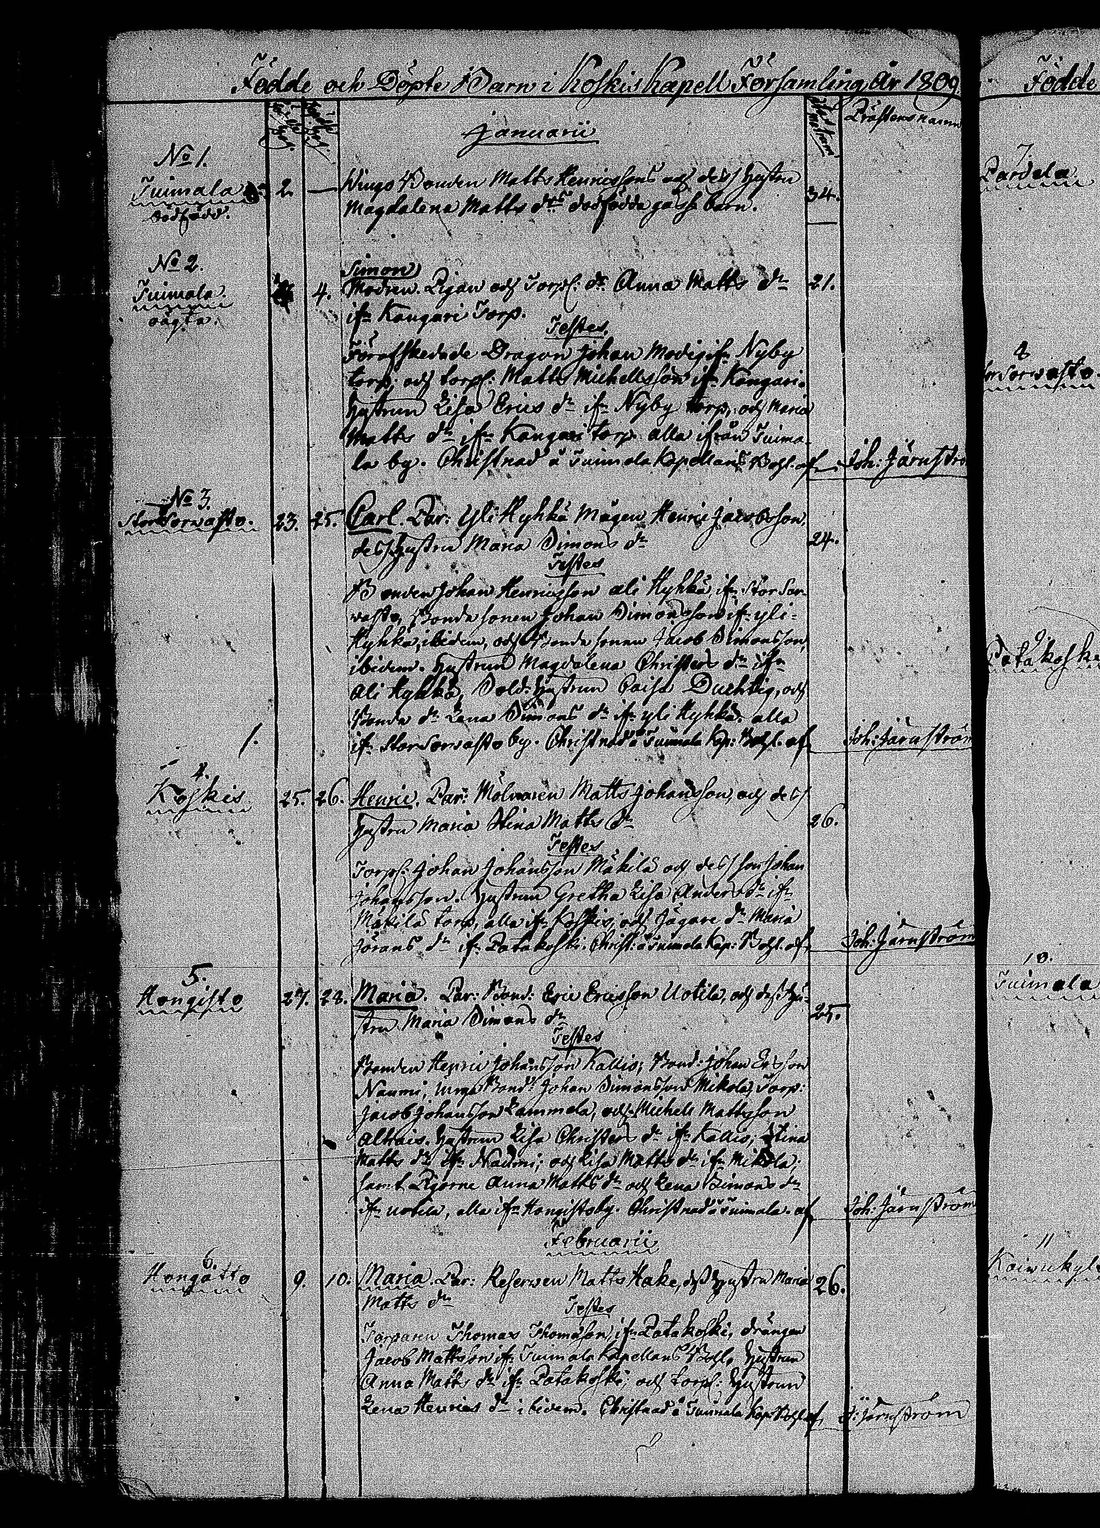 Födde och Döpte Barn i Koskis Kapell Församling År 1809
Prästens namn
Januarii
No 1.
Tuimala
dödfödd.
2. — Wings Bonden Matts Henricssons och dess hustru
Magdalena Matts dtrs dödfödda gåsse barn.
34.
No 2.
Tuimala
oägta.
4.
Simon
Modren Pigan och Torp: dr Anna Matts dr
ifn Kangari Torp.
21.
Testes.
Förafskedade Dragon Johan Modig ifn Nyby
torp, och torp: Matts Michellsson ifn Kangari.
Hustrun Lisa Erics dr ifn Nyby torp, och Maria
Matts dr ifn Kangari torp alla ifrån Tuima-
la by. Christnad å Tuimala Kapellans Bohl. af
Joh: Järnström
No 3.
Storsorvasto.
23. 25. Carl. Par: Yli Hyhkä Mågen Henric Jacobsson,
dess hustru Maria Simons dr
24.
Testes
Bonden Johan Henricsson ali Hyhkä, ifn Storsor-
vasto, Bonde sonen Johan Simonsson ifn yli-
Hyhkä, ibidem, och Bonde sonen Jacob Simonsson,
ibidem. Hustrun Magdalena Christers dr ifn
ali Hyhkä, Sold: Hustrun Caisa Duchtig, och
Bonde dr Lena Simons dr ifn yli Hyhkä, alla
ifn Storsorvasto by. Christnad å Tuimala Kap: Bohl. af
Joh: Järnström
1.
4.
Koskis
25. 26. Henric. Par: Mölnaren Matts Johansson, och dess
hustru Maria Stina Matts dr
26.
Testes
Torp: Johan Johansson Mäkilä och dess son Johan
Johansson. Hustrun Gretha Lisa Anders dr ifn
Mäkilä torp, alla ifn Koskis, och Jägare dr Maria
Görans dr ifn Patakoski. Christ: å Tuimala Kap: Bohl. af
Joh: Järnström
5.
Hongisto
27. 28. Maria. Par: Bond: Eric Ericsson Uotila, och dess hu-
stru Maria Simons dr
25.
Testes
Bonden Henric Johansson Kallis, Bond: Johan Ericsson
Naumi, unga Bond: Johan Simonsson Mikola, Torp:
Jacob Johansson Lammela, och Michell Mattsson
Alhais. Hustrun Lisa Christers dr ifn Kallis, Stina
Matts dr ifn Naumi, och Lisa Matts dr ifn Mikola,
samt Pigorne Anna Matts dr och Lena Simons dr
ifn Uotila, alla ifn Hongistoby. Christnad å Tuimala. af
Joh: Järnström
Februarii
6.
Hongåtto
9. 10. Maria. Par: Reserven Matts Hake, dess hustru Maria
Matts dr
26.
Testes
Torparen Thomas Thomsson, ifn Patakoski, drängen
Jacob Mattsson ifn Tuimala Kapellans Bohl. Hustrun
Anna Matts dr ifn Patakoski och torp: hustrun
Lena Henrics dr ibidem. Christnad å Tuimala Kap: Bohl. af
J: Järnström
Födde
7.
Pardala
8
Patakoski
10.
Tuimala
11
Koivukyl